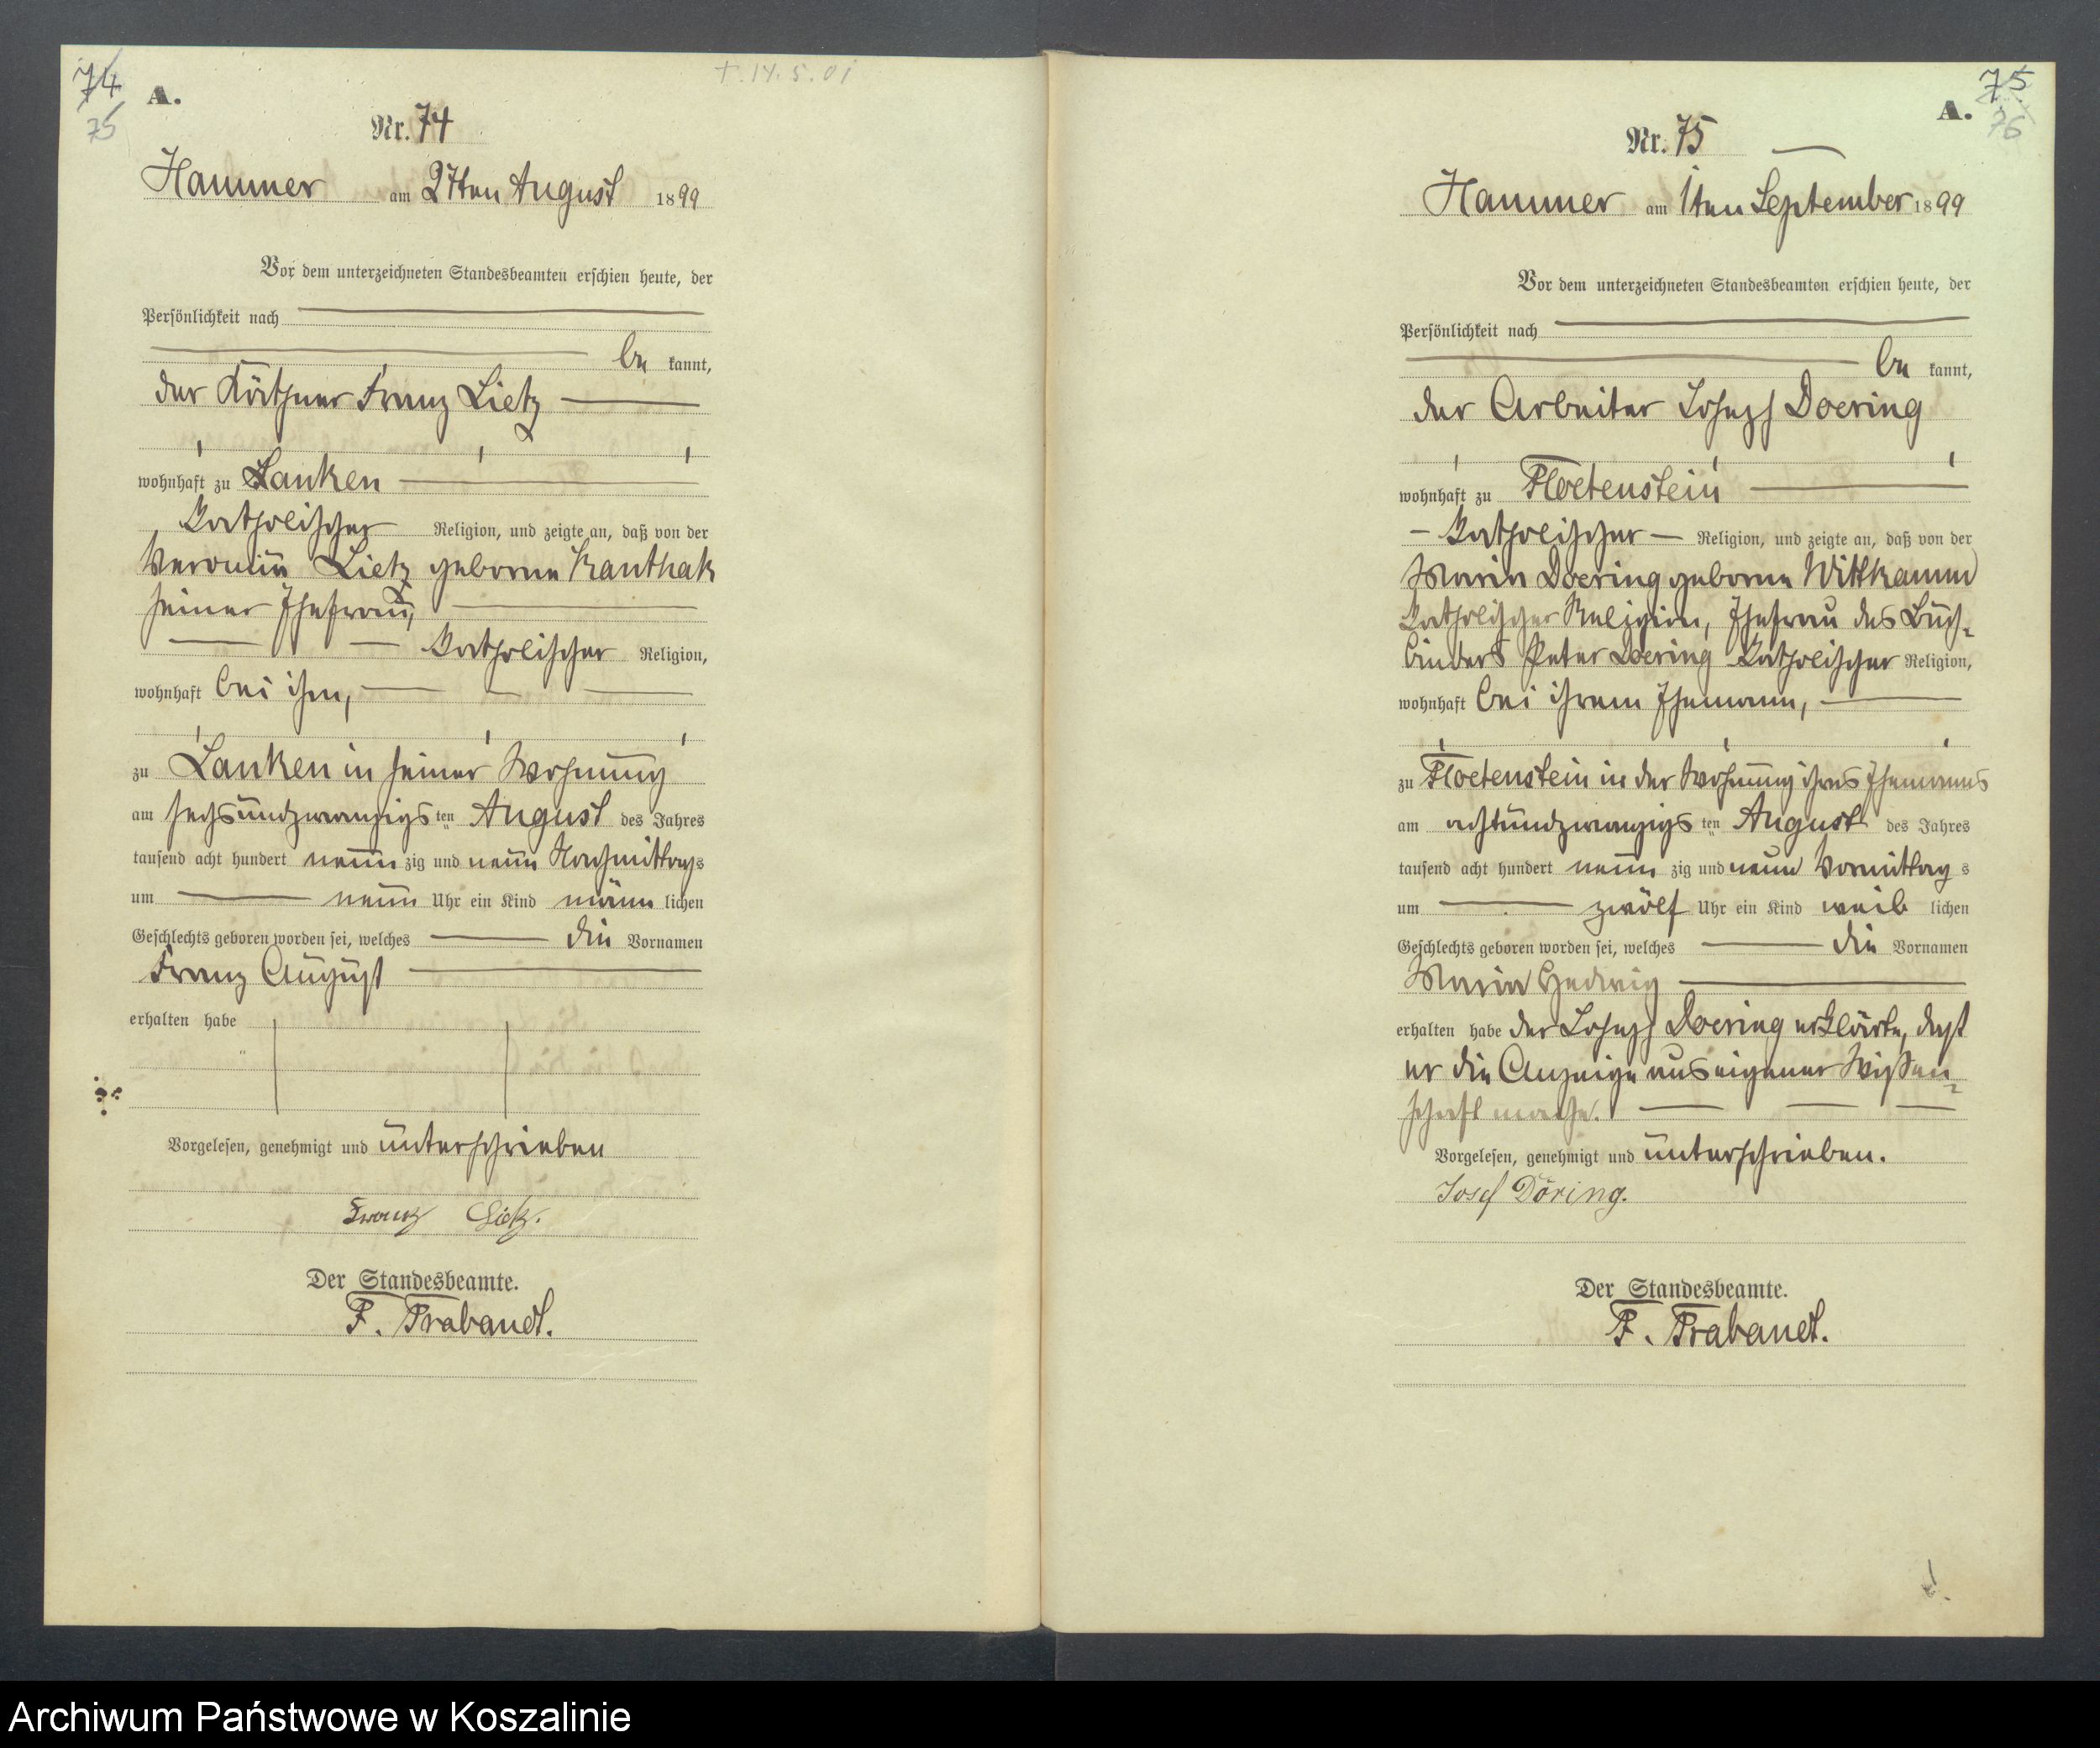 74
75
A.
+. 14. 5. 01
Nr. 74
Hammer am 27ten August 1899
Vor dem unterzeichneten Standesbeamten erschien heute, der
Persönlichkeit nach
be kannt,
der Käthner Franz Lietz
wohnhaft zu Lanken
katholischer Religion, und zeigte an, daß von der
Veronica Lietz geborne Kanthak
seiner Ehefrau,
katholischer Religion,
wohnhaft bei ihm,
zu Lanken in seiner Wohnung
am sechsundzwanzigs ten August des Jahres
tausend acht hundert neun zig und neun Nachmittags
um neun Uhr ein Kind männ lichen
Geschlechts geboren worden sei, welches die Vornamen
Franz August
erhalten habe
Vorgelesen, genehmigt und unterschrieben
Franz Lietz.
Der Standesbeamte.
F. Trabandt.
75
76
A.
Nr. 75
Hammer am 1ten September 1899
Vor dem unterzeichneten Standesbeamten erschien heute, der
Persönlichkeit nach
be kannt,
der Arbeiter Joseph Doering
wohnhaft zu Floetenstein
- katholischer - Religion, und zeigte an, daß von der
Maria Doering geborne Wittkamm
katholischer Religion, Ehefrau des Buch-
binders Peter Doering katholischer Religion,
wohnhaft bei ihrem Ehemann,
zu Floetenstein in der Wohnung ihres Ehemanns
am achtundzwanzigs ten August des Jahres
tausend acht hundert neun zig und neun Vormittag s
um zwölf Uhr ein Kind weib lichen
Geschlechts geboren worden sei, welches die Vornamen
Maria Hedwig
erhalten habe der Joseph Doering erklärte, daß
er die Anzeige aus eigener Wissen-
schaft mache.
Vorgelesen, genehmigt und unterschrieben.
Josef Döring.
Der Standesbeamte.
F. Trabandt.
Archiwum Państwowe w Koszalinie